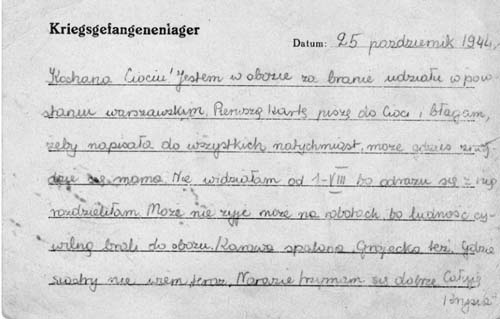 Kriegsgefangenenlager
Datum: 25 październik 1944,
Kochana Ciociu! Jestem w obozie za branie udziału w pow-
staniu warszawskim, Pierwszą kartę piszę do Cioci i błagam,
żeby napisała do wszystkich natychmiast, może gdzieś znaj-
dzie się mama Nie widziałam od 1-VIII bo odrazu się z nią
rozdzieliłam. Może nie żyje może na robotach, bo ludność cy-
wilną brali do obozu. Karowa spalona Grójecka też. Gdzie
siostry nie wiem teraz. Narazie trzymam się dobrze Całuję